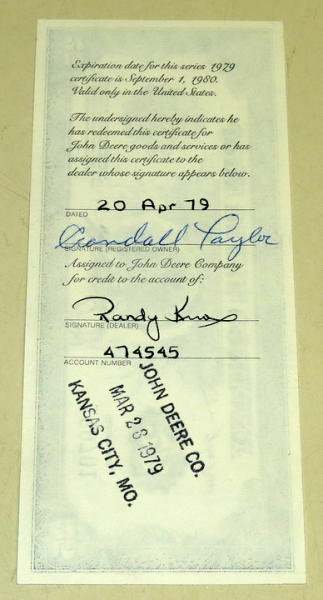 Expiration date for this series 1979
certificate is September 1, 1980.
Valid only in the United States.
The undersigned hereby indicates he
has redeemed this certificate for
John Deere goods and services or has
assigned this certificate to the
dealer whose signature appears below.
20 Apr 79
DATED
Crandall Taylor
SIGNATURE (REGISTERED OWNER)
Assigned to John Deere Company
for credit to the account of:
Randy Knox
SIGNATURE (DEALER)
474545
ACCOUNT NUMBER
JOHN DEERE CO.
MAR 28 1979
KANSAS CITY, MO.